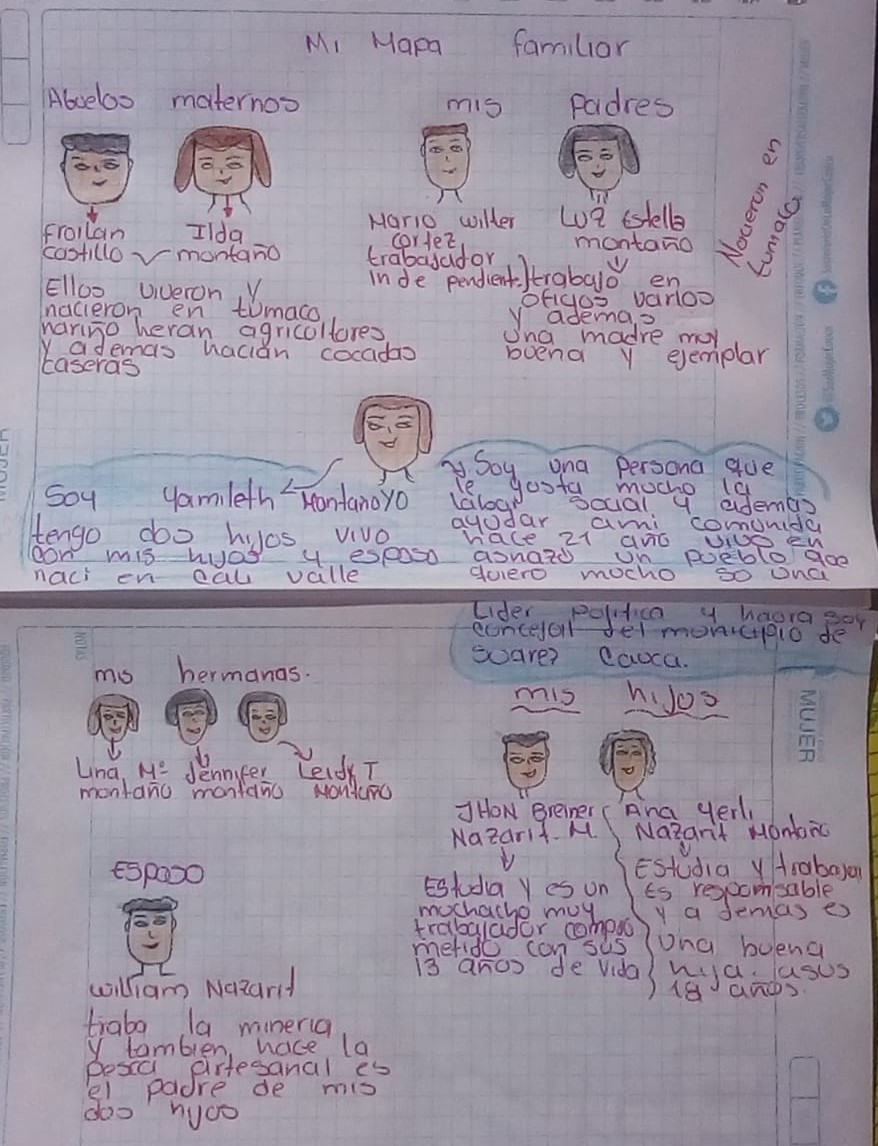 Mi Mapa familiar
Abuelos maternos
Froilan
castillo
Ilda
montaño
Ellos viveron y
nacieron en tumaco
nariño heran agricoltores
y ademas hacian cocadas
caseras
mis padres
Mario wilter
cortez
trabajador
independient
Luz Estella
montaño
trabajo en
oficios varios
y ademas
una madre muy
buena y ejemplar
Nacieron en
tumaco
Soy Yamileth Montaño yo
tengo dos hijos vivo
con mis hijos y esposo
naci en cali valle
Soy una persona que
le gosta mucho la
labor social y ademas
ayudar ami comunida
hace 21 año vivo en
un pueblo que
quiero mucho so una
Lider politica y haora soy
concejal del municipio de
suarez Cauca.
mis hermanas.
Lina Mª
montaño
Jennifer
montaño
Leidy T
Montaño
mis hijos
JHON Breiner
Nazarit. M.
Estudia y es un
muchacho muy
trabajador compro
metido con sus
13 años de vida
Ana Yerli
Nazarit Montaño
Estudia y trabaja
Es responsable
y a demas es
una buena
hija. asus
18 años.
Esposo
william Nazarit
traba la mineria
y tambien hace la
pesca artesanal es
el padre de mis
dos hijos
NOTAS
MUJER